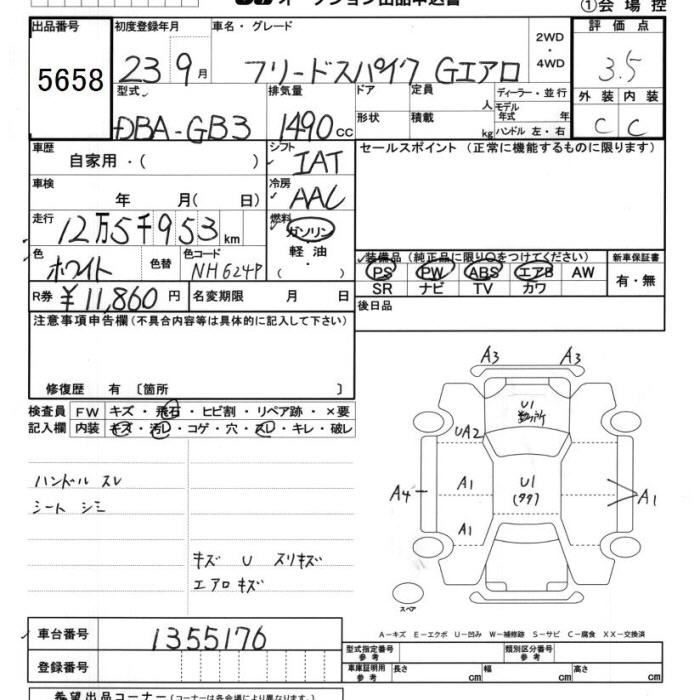 オークション出品申込書 ①会場控
出品番号 初度登録年月 車名・グレード 2WD・4WD 評価点
5658 23 9月 フリードスパイク Gエアロ 3.5
型式 排気量 ドア 定員 人 ディーラー・並行 外装 内装
DBA-GB3 1490cc 形状 積載 kg モデル年式 年 ハンドル 左・右 C C
車歴 自家用・( ) シフト IAT セールスポイント (正常に機能するものに限ります)
車検 年 月( 日) 冷房 AAC
走行 12万5千953km 燃料 ガソリン 軽油・( )
色 ホワイト 色替 色コード NH624P
装備品 (純正品に限り○をつけてください) 新車保証書
PS PW ABS エアB AW 有・無
SR ナビ TV カワ
R券 ¥11,860円 名変期限 月 日 後日品
注意事項申告欄 (不具合内容等は具体的に記入して下さい)
修復歴 有 〔箇所 〕
検査員 FW キズ・飛石・ヒビ割・リペア跡・×要
記入欄 内装 キズ・汚レ・コゲ・穴・スレ・キレ・破レ
ハンドル スレ
シート シミ
キズ U スリキズ
エアロ キズ
A3 A3
U1
UA2
A1 U1
A4 (タタ) A1
A1
スペア
A-キズ E-エクボ U-凹み W-補修跡 S-サビ C-腐食 XX-交換済
車台番号 1355176
型式指定番号 参考 類別区分番号 参考
登録番号 車庫証明用 参考 長さ cm 幅 cm 高さ cm
希望出品コーナー (コーナーは各会場により異なります。)